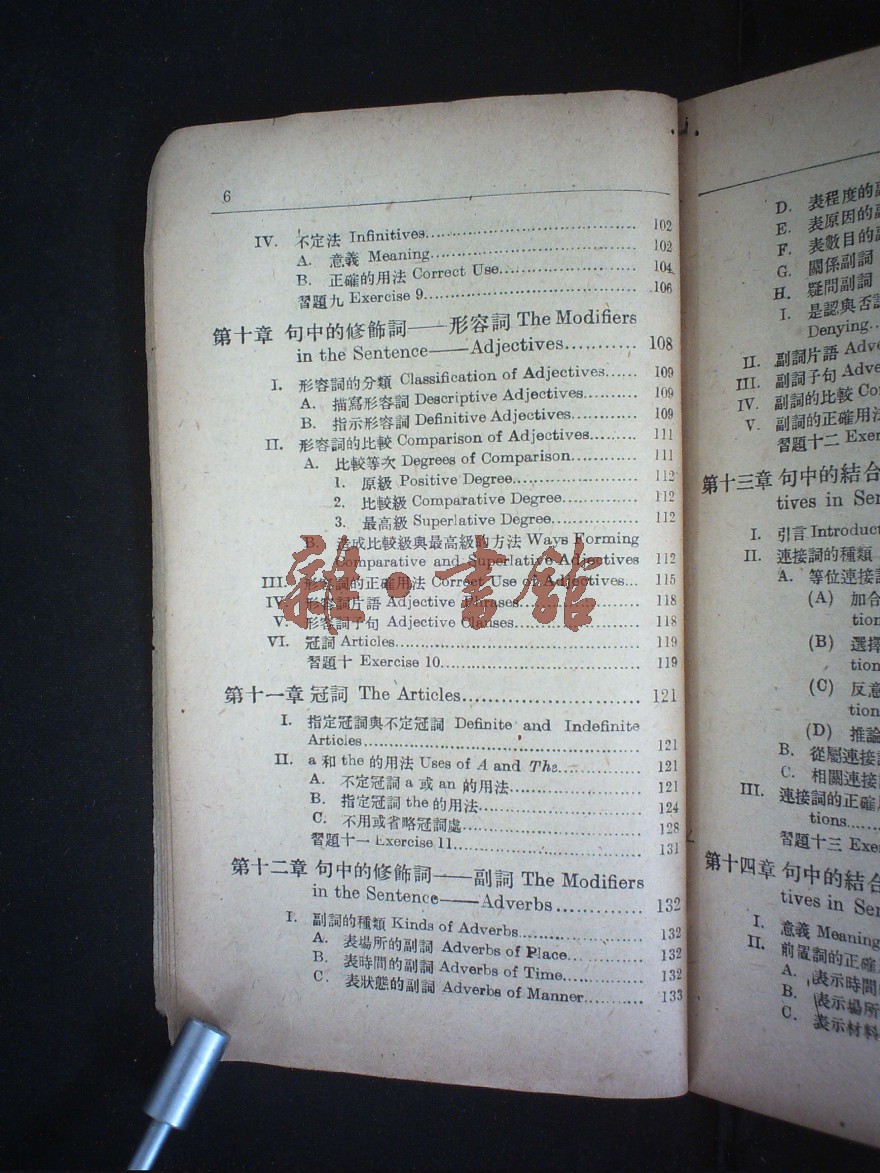 6
IV. 不定法 Infinitives 102
A. 意義 Meaning 102
B. 正確的用法 Correct Use 104
習題九 Exercise 9 106
第十章 句中的修飾詞——形容詞 The Modifiers
in the Sentence——Adjectives 108
I. 形容詞的分類 Classification of Adjectives 109
A. 描寫形容詞 Descriptive Adjectives 109
B. 指示形容詞 Definitive Adjectives 109
II. 形容詞的比較 Comparison of Adjectives 111
A. 比較等次 Degrees of Comparison 111
1. 原級 Positive Degree 112
2. 比較級 Comparative Degree 112
3. 最高級 Superlative Degree 112
B. 造成比較級與最高級的方法 Ways Forming
Comparative and Superlative Adjectives 112
III. 形容詞的正確用法 Correct Use of Adjectives 115
IV. 形容詞片語 Adjective Phrases 118
V. 形容詞子句 Adjective Clauses 118
VI. 冠詞 Articles 119
習題十 Exercise 10 119
第十一章 冠詞 The Articles 121
I. 指定冠詞與不定冠詞 Definite and Indefinite
Articles 121
II. a 和 the 的用法 Uses of A and The 121
A. 不定冠詞 a 或 an 的用法 121
B. 指定冠詞 the 的用法 124
C. 不用或省略冠詞處 128
習題十一 Exercise 11 131
第十二章 句中的修飾詞——副詞 The Modifiers
in the Sentence——Adverbs 132
I. 副詞的種類 Kinds of Adverbs 132
A. 表場所的副詞 Adverbs of Place 132
B. 表時間的副詞 Adverbs of Time 132
C. 表狀態的副詞 Adverbs of Manner 133
雜·書館
D. 表程度的
E. 表原因的
F. 表數目的
G. 關係副詞
H. 疑問副詞
I. 是認與否
Denying
II. 副詞片語
III. 副詞子句
IV. 副詞的比較
V. 副詞的正確用法
習題十二
第十三章 句中的結合
tives in Sen
I. 引言 Introduct
II. 連接詞的種類
A. 等位連接
(A) 加合
tion
(B) 選擇
tion
(C) 反意
tion
(D) 推論
B. 從屬連接
C. 相關連接
III. 連接詞的正確
tions
習題十三 Exe
第十四章 句中的結合
tives in Sen
I. 意義 Meaning
II. 前置詞的正確
A. 表示時間
B. 表示場所
C. 表示材料